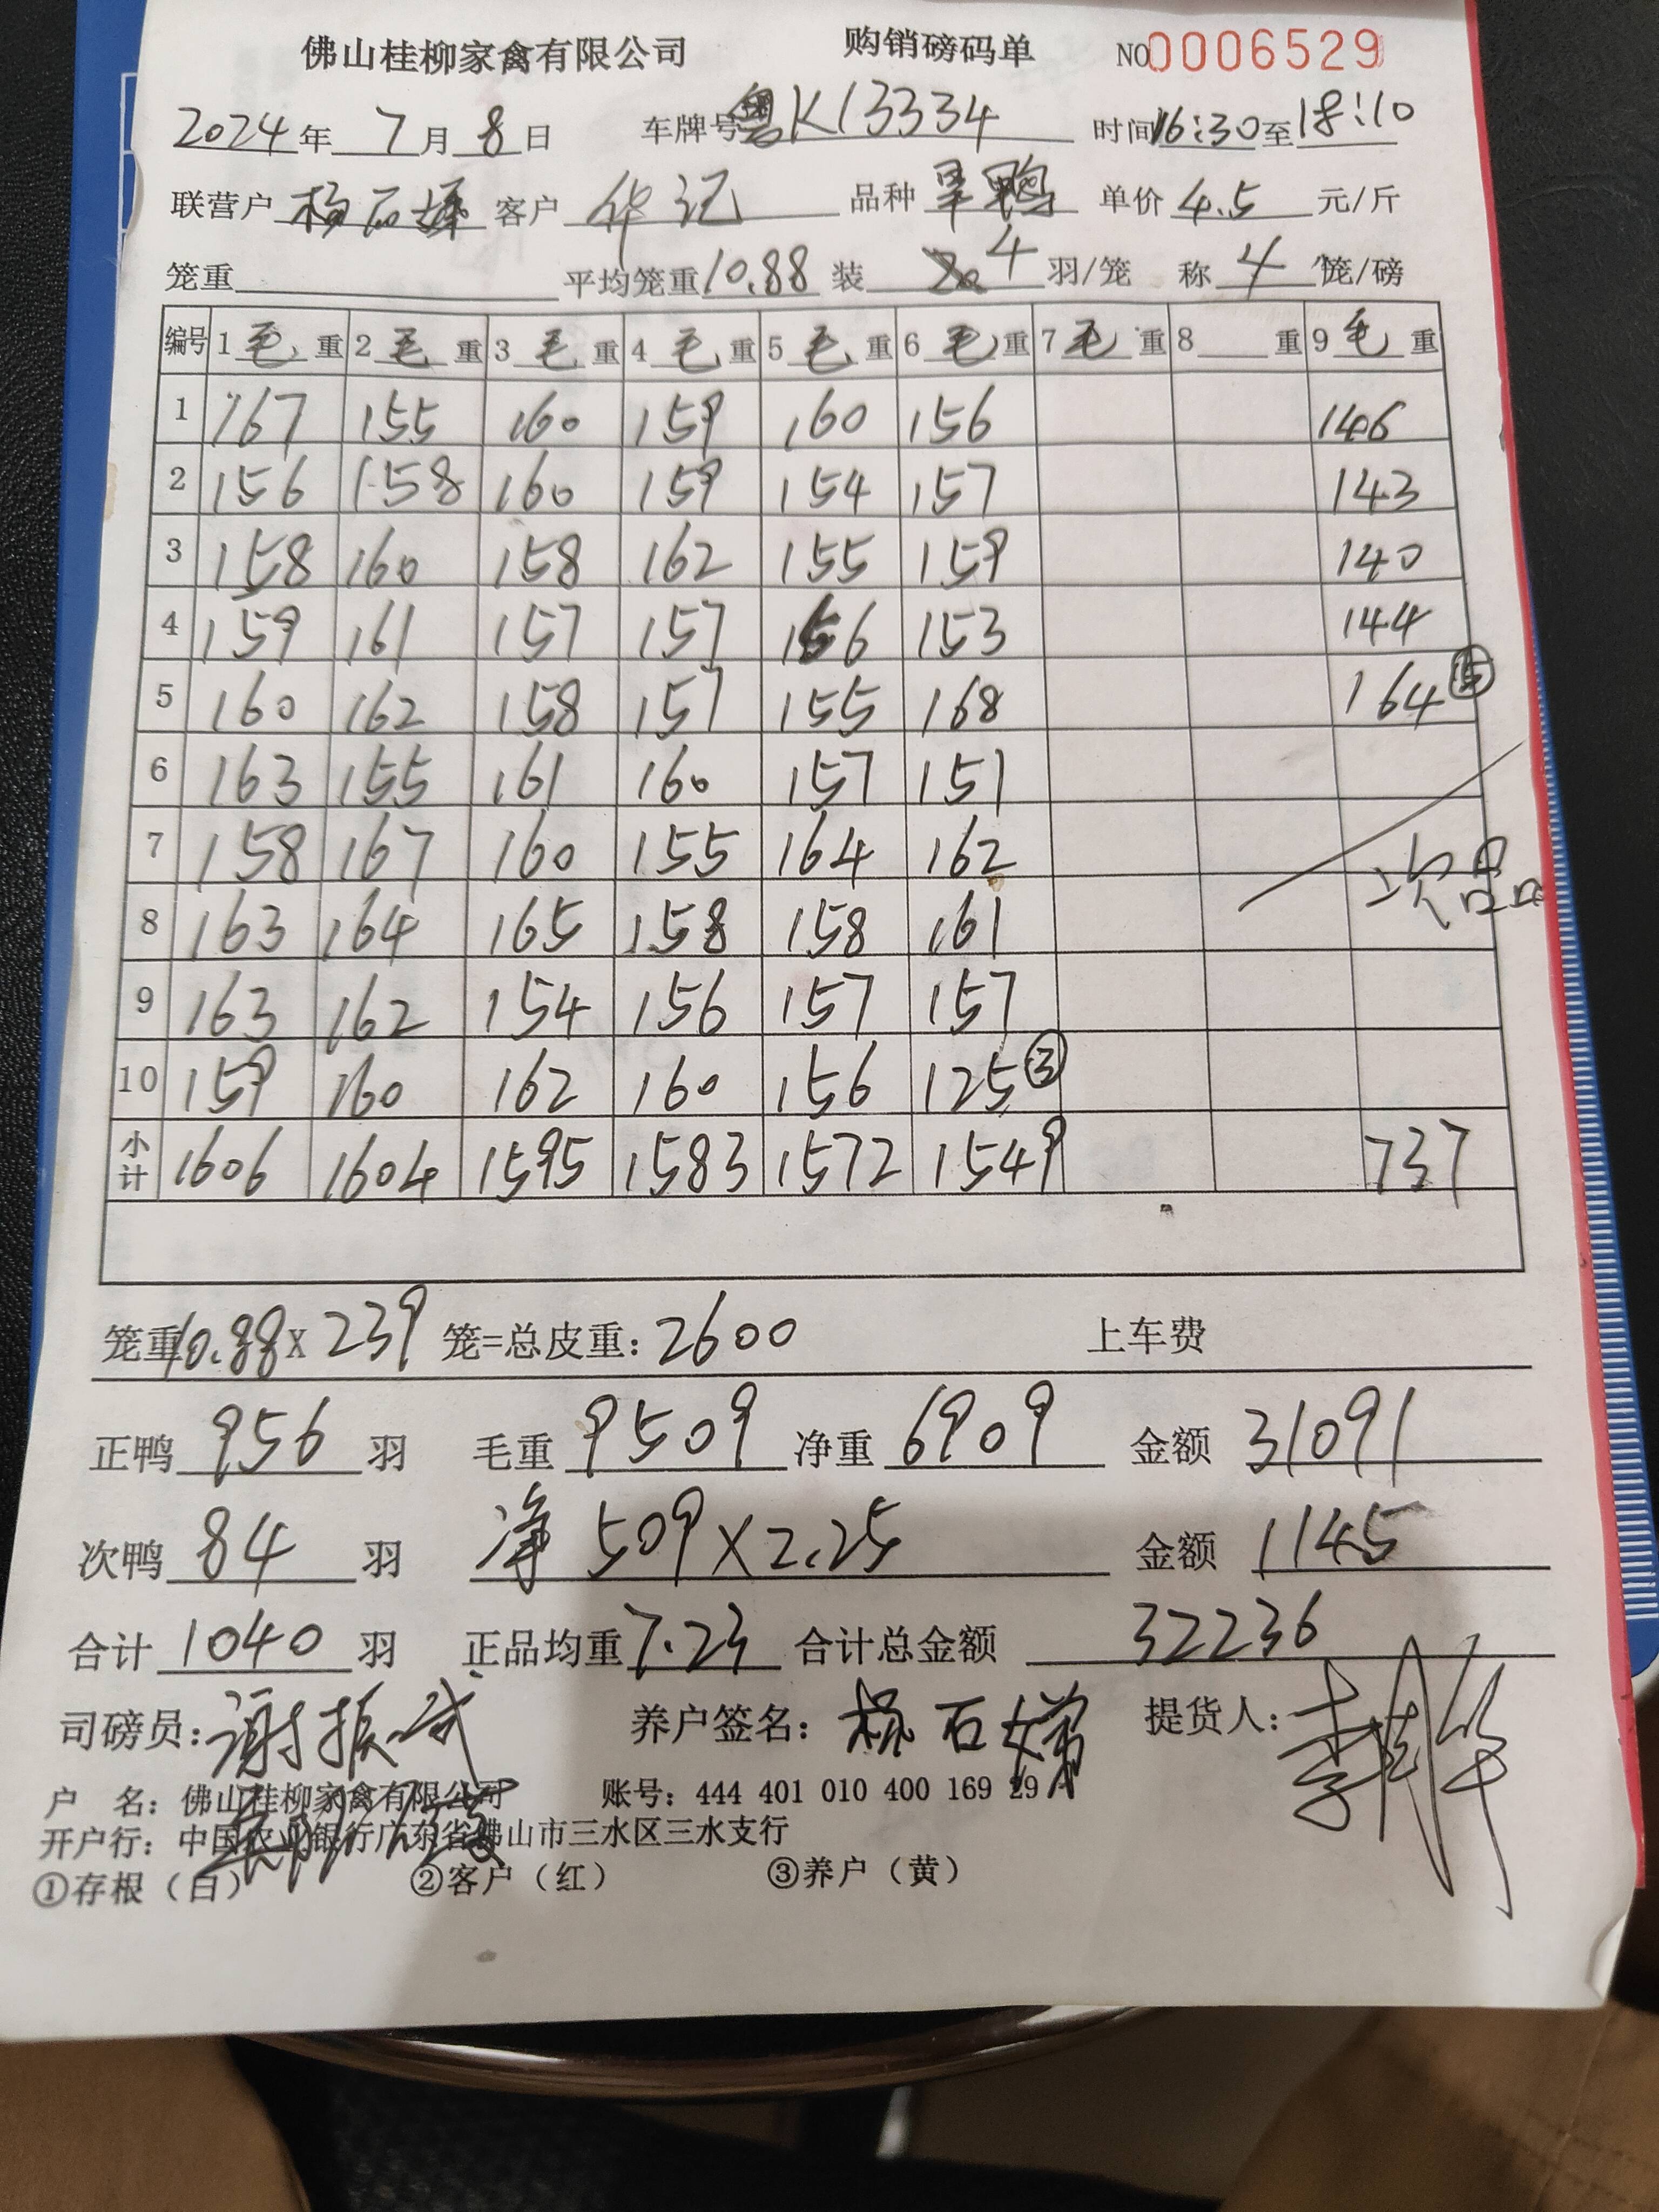 佛山桂柳家禽有限公司 购销磅码单 NO0006529
2024年 7月 8日 车牌号粤K13334 时间16:30至18:10
联营户 杨石娣 客户 华记 品种 旱鸭 单价 4.5 元/斤
笼重 平均笼重10.88 装 4 羽/笼 称 4 笼/磅
编号 1 毛 重 2 毛 重 3 毛 重 4 毛 重 5 毛 重 6 毛 重 7 毛 重 8 重 9 毛 重
1 167 155 160 159 160 156 146
2 156 158 160 159 154 157 143
3 158 160 158 162 155 159 140
4 159 161 157 157 156 153 144
5 160 162 158 157 155 168 164 ⑤
6 163 155 161 160 157 151
7 158 167 160 155 164 162
次品
8 163 164 165 158 158 161
9 163 162 154 156 157 157
10 159 160 162 160 156 125③
小计 1606 1604 1595 1583 1572 1549 737
笼重10.88X 239 笼=总皮重: 2600 上车费
正鸭 956 羽 毛重 9509 净重 6909 金额 31091
次鸭 84 羽 净 509X2.25 金额 1145
合计 1040 羽 正品均重7.23 合计总金额 32236
司磅员:谢振武 养户签名: 杨石娣 提货人:
户 名: 佛山桂柳家禽有限公司 账号: 444 401 010 400 169 29
开户行: 中国农业银行广东省佛山市三水区三水支行
①存根（白） ②客户（红） ③养户（黄）